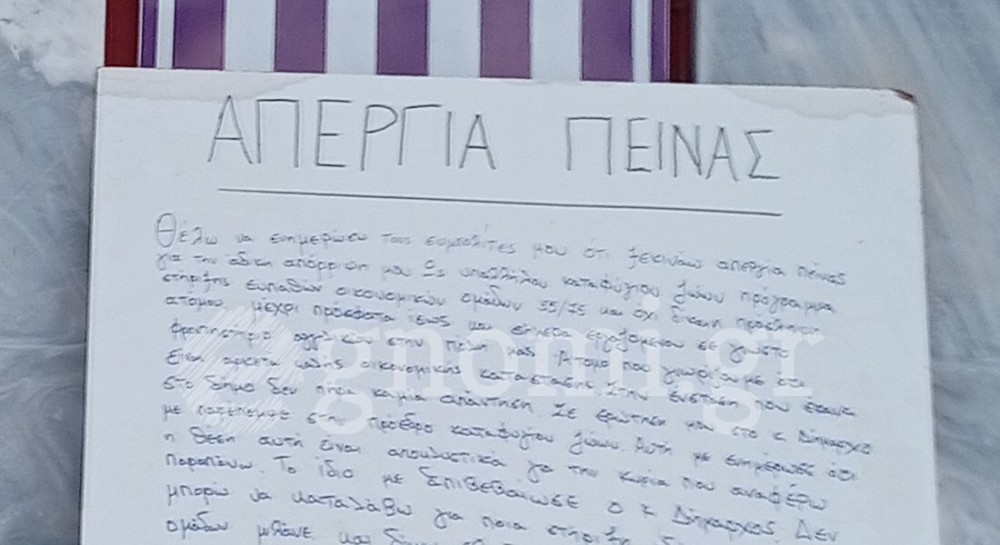 ΑΠΕΡΓΙΑ ΠΕΙΝΑΣ
Θέλω να ενημερώσω τους συμπολίτες μου ότι ξεκινάω απεργία πείνας
για την άδικη απόρριψη μου ως υπαλλήλου καταφύγιου ζώων πρόγραμμα
στήριξης ευπαθών οικονομικών ομάδων 55/75 και όχι δίκαιη πρόσληψη
ατόμου μέχρι πρόσφατα ίσως και σήμερα εργαζομένου σε γνωστό
φροντιστήριο αγγλικών στην πόλη μας. Άτομο που γνωρίζαμε ότι
είναι αρκετά καλής οικονομικής κατάστασης. Στην ένσταση που έκανα
στο δήμο δεν πήρα καμία απάντηση. Σε ερώτηση μου στο κ Δήμαρχο
με παρέπεμψε στη πρόεδρο καταφυγίου ζώων. Αυτή με ενημέρωσε ότι
η θέση αυτή είναι αποκλειστικά για την κυρία που αναφέρω
παραπάνω. Το ίδιο με επιβεβαίωσε ο κ Δήμαρχος. Δεν
μπορώ να καταλάβω για ποια στήριξη
ομάδων μιλάνε και
gnomi.gr